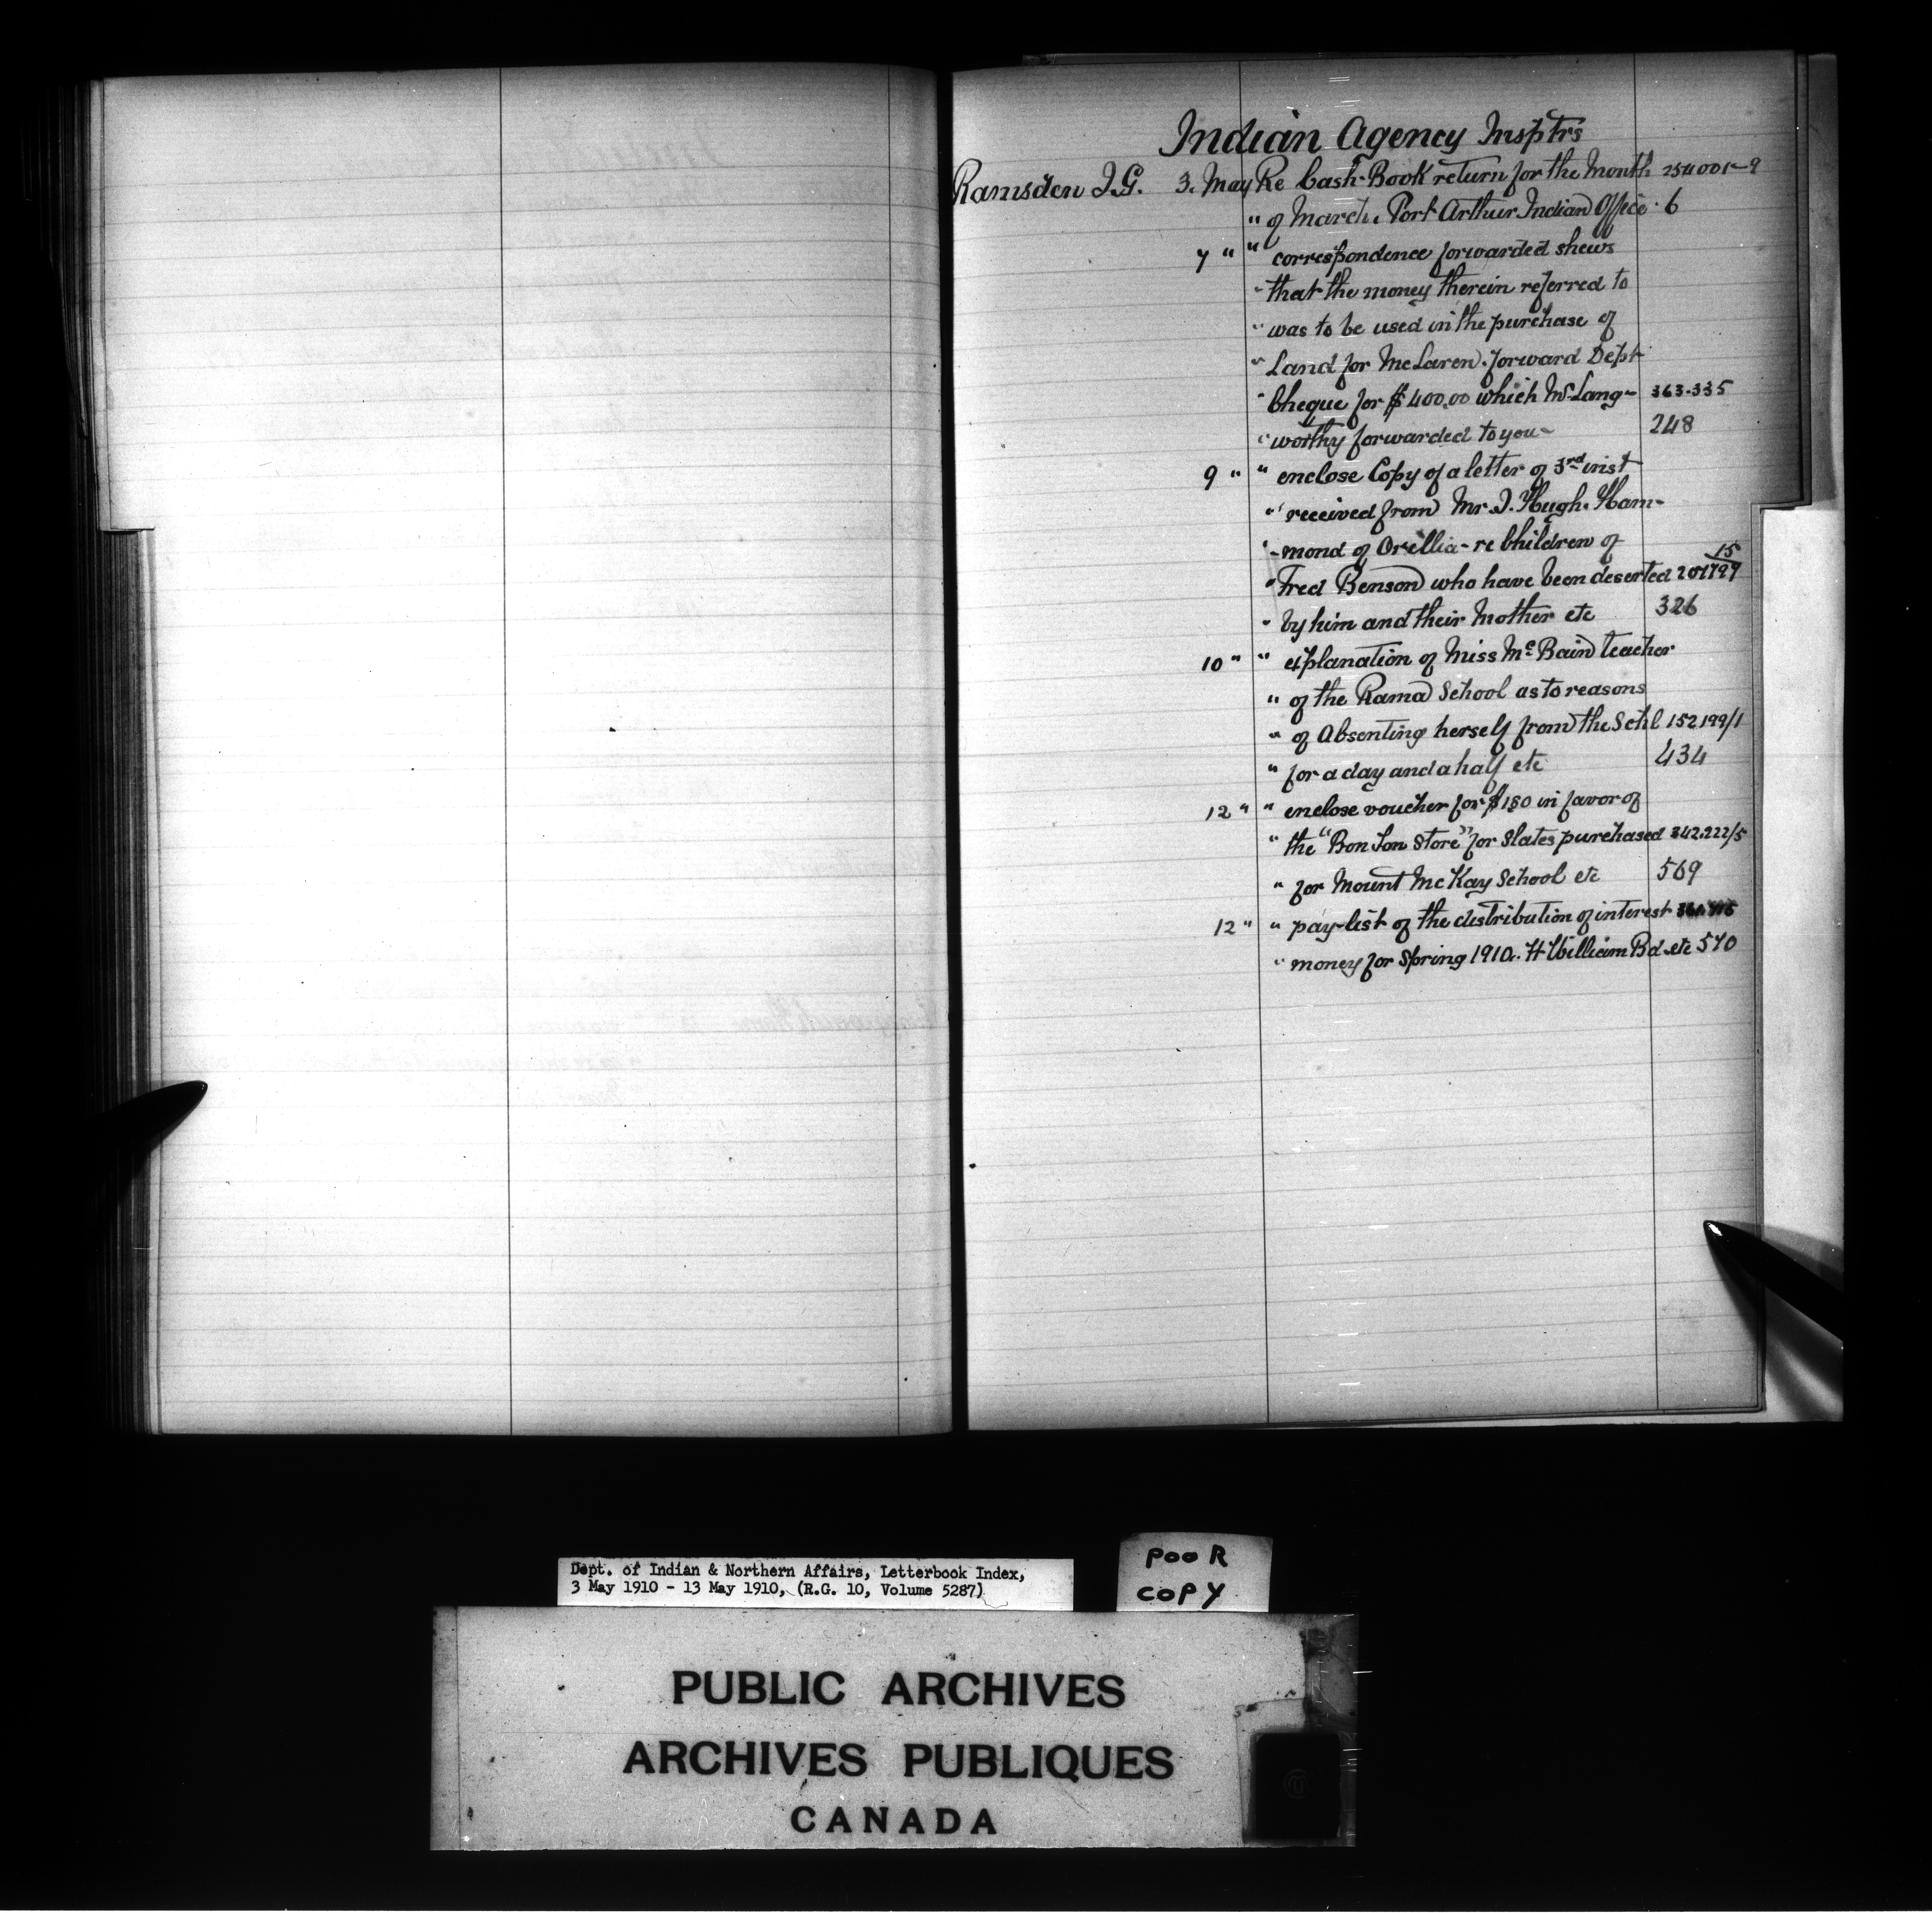 Indian Agency Insptrs
Ramsden J.G. 3. May Re Cash-Book return for the Month 254001-9
" of March. Port Arthur Indian Office. 6
7 " " correspondence forwarded shews
" that the money therein referred to
" was to be used in the purchase of
" Land for McLaren. forward Dept
" Cheque for $400.00 which Mr Lang- 363.335
" worthy forwarded to you- 248
9 " " enclose Copy of a letter of 3rd inst
" received from Mr. J. Hugh. Ham-
" -mond of Orillia - re Children of 15
" Fred Benson who have been deserted 201797
" by him and their Mother etc 326
10 " " explanation of Miss Mc Bain teacher
" of the Rama School as to reasons
" of Absenting herself from the Schl 152199/1
" for a day and a half etc 434
12 " " enclose voucher for $180 in favor of
" the "Bon Ton Store" for Slates purchased 342.222/5
" for Mount McKay School etc 569
12 " " pay-list of the distribution of interest
" money for Spring 1910. Ft William Bd. etc 570
Dept. of Indian & Northern Affairs, Letterbook Index,
3 May 1910 - 13 May 1910, (R.G. 10, Volume 5287)
POOR
COPY
PUBLIC ARCHIVES
ARCHIVES PUBLIQUES
CANADA